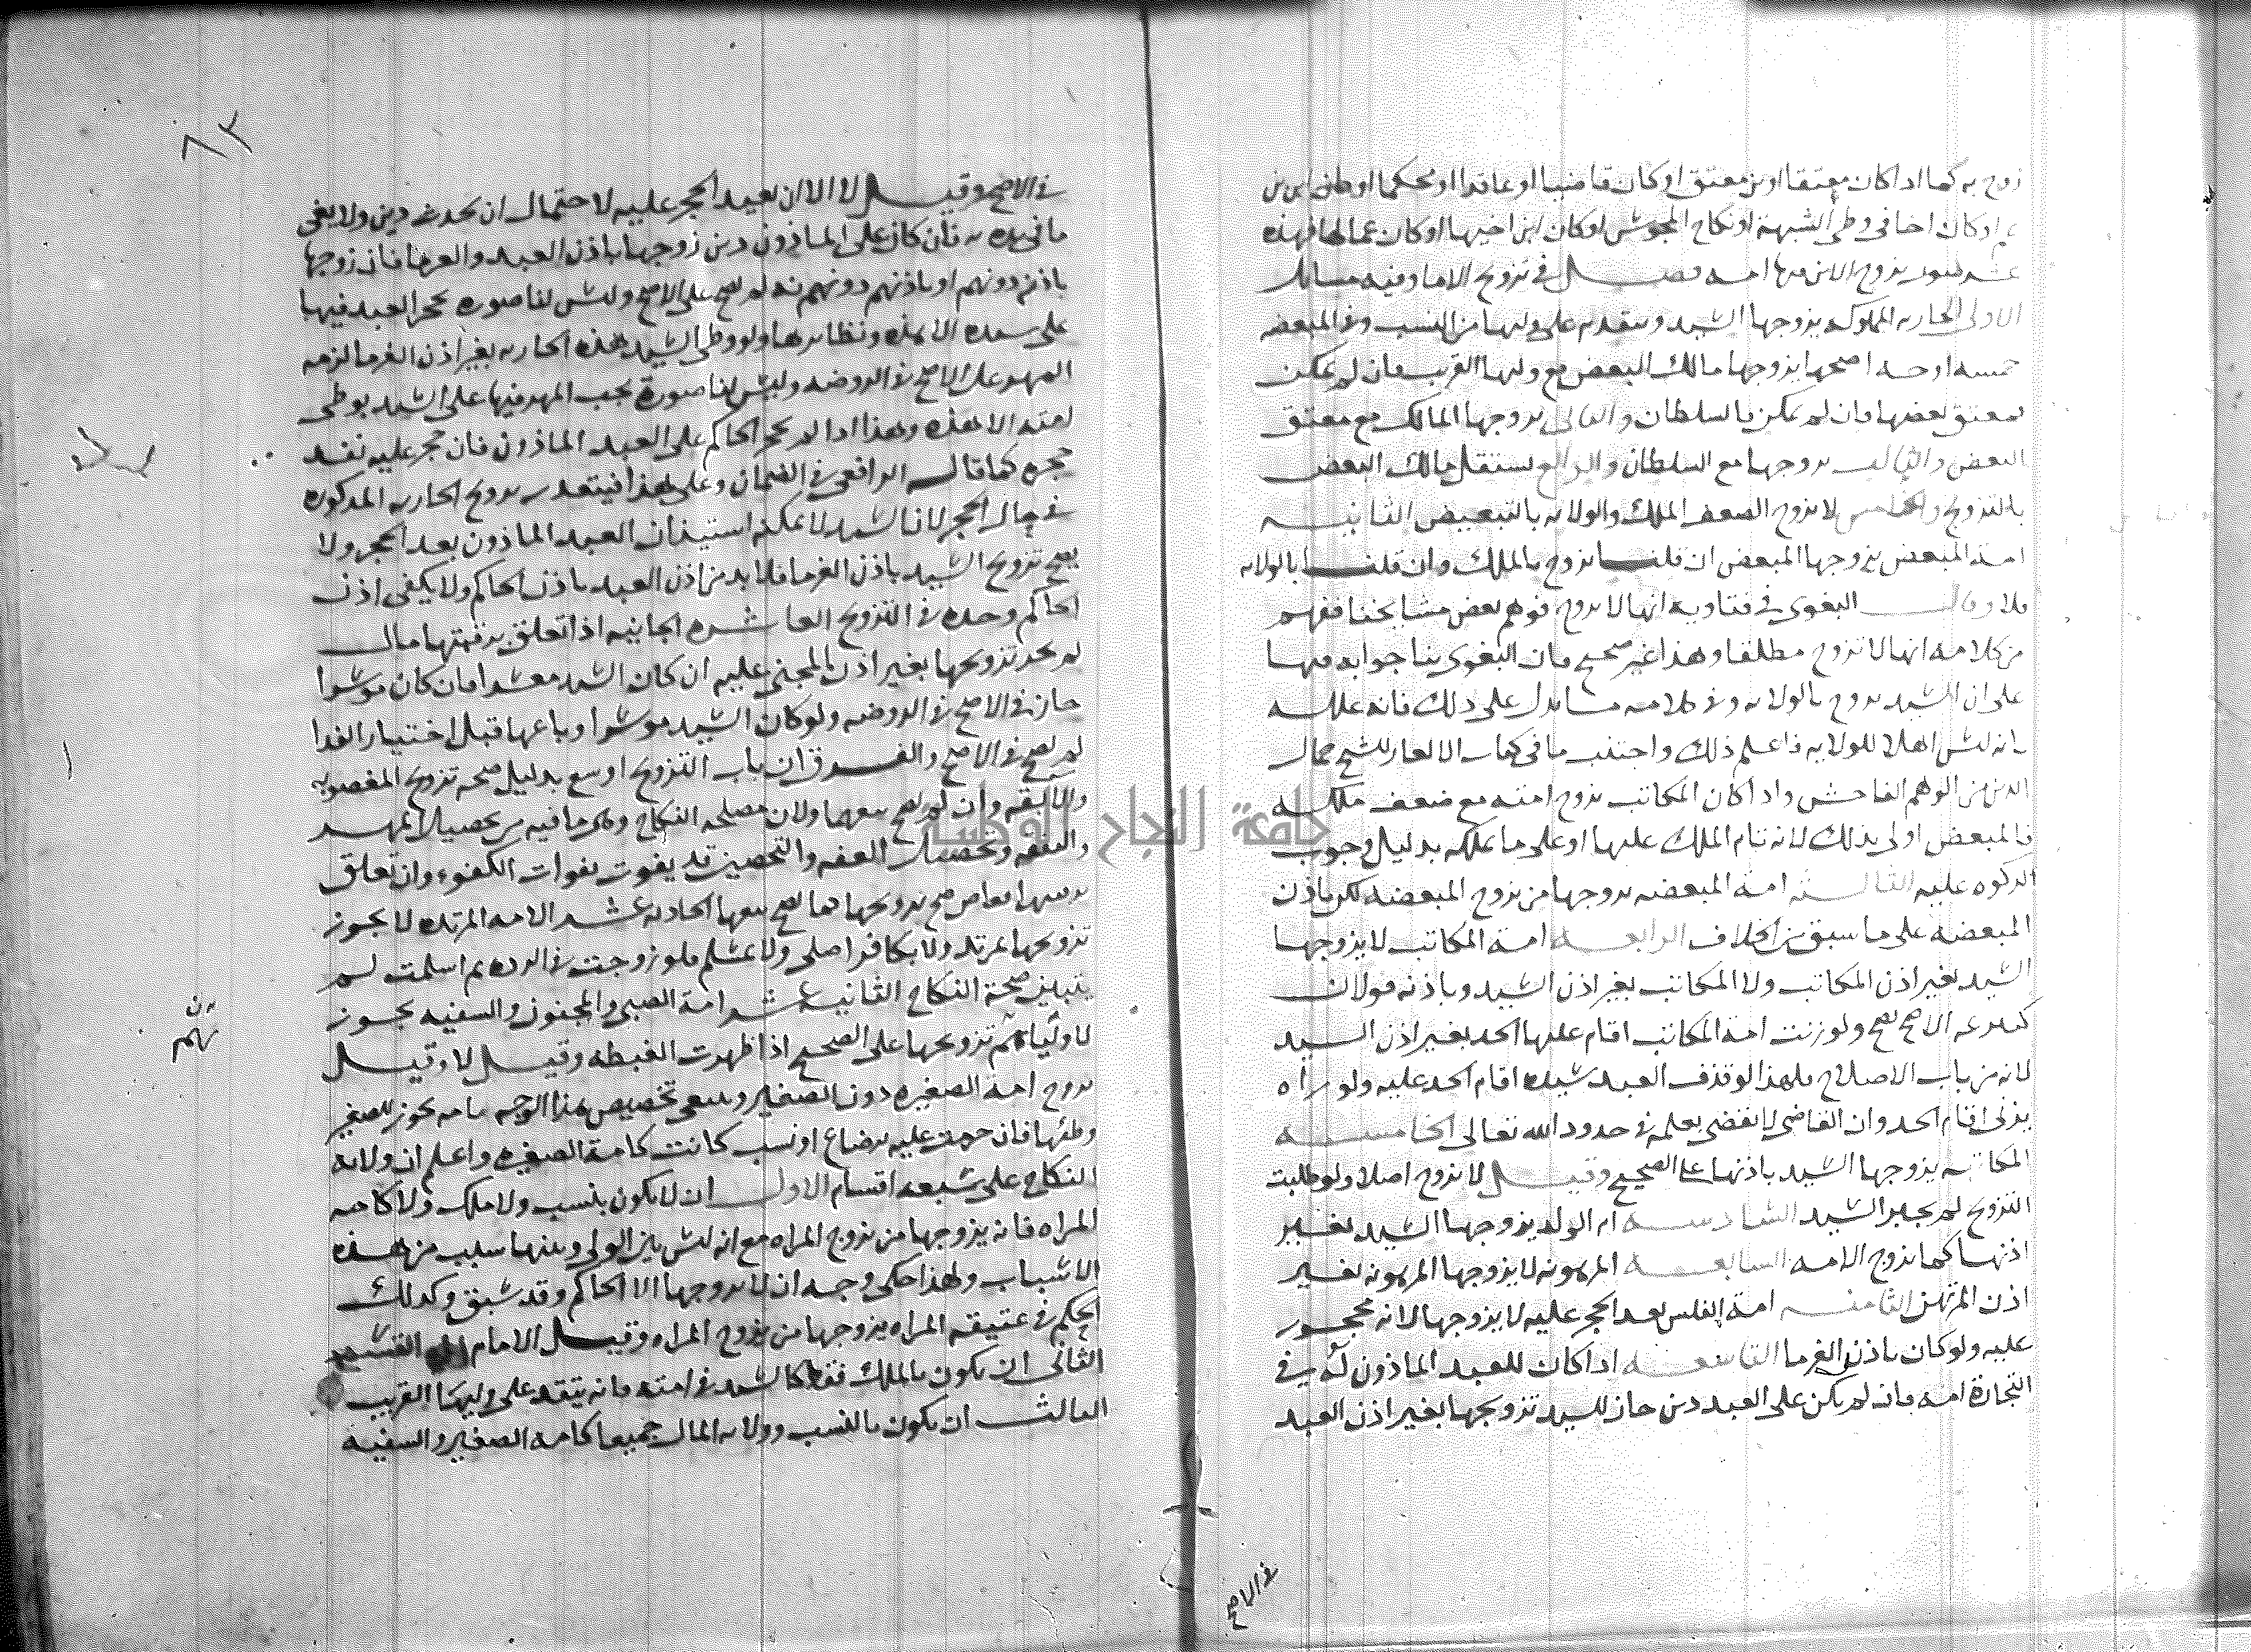 زوج به كما اذا كان معتقا او بن معتق او كان قاضيا او عاقدا او محكما او وطئ ابن بن
عم او كان اخا في وطى الشبهة او نكاح المجوس او كان ابن اخيها او كان عما لها فهذه
يزوج الابن فيها امه فصل في تزويج الاما وفيه مسايل
الاولى الجاريه المملوكه يزوجها السيد ويتقدم على وليها من النسب وفي المبعضه
خمسه اوجه اصحها يزوجها مالك البعض مع وليها القريب فان لم يمكن
فمعتق بعضها فان لم يمكن فالسلطان والثاني يزوجها المالك مع معتق
البعض والثالث يزوجها مع السلطان والرابع يستقل مالك البعض
بالتزويج والخامس لا يزوج لضعف الملك والولايه بالتبعيض الثانيه
امة المبعض يزوجها المبعض ان قلنا يزوج بالملك وان قلنا بالولايه
فلا وقال البغوى في فتاويه انها لا تزوج فوهم بعض مشايخنا ففهم
من كلامه انها لا تزوج مطلقا وهذا غير صحيح فان البغوى بنا جوابه فيها
على ان السيد يزوج بالولايه وفي كلامه ما يدل على ذلك فانه علله
بانه ليس اهلا للولايه فاعلم ذلك واجتنب ما في كتاب الالغاز للشيخ جمال
الدين من الوهم الفاحش واذا كان المكاتب يزوج امته مع ضعف ملكه
فالمبعض اولى بذلك لانه تام الملك عليها او على ما يملكه بدليل وجوب
الزكوه عليه الثالثه امة المبعضه يزوجها من يزوج المبعضه لكن باذن
المبعضه على ما سبق من الخلاف الرابعه امة المكاتب لا يزوجها
السيد بغير اذن المكاتب ولا المكاتب بغير اذن السيد وباذنه قولان
كتبرعه الاصح يصح ولو زنت امة المكاتب اقام عليها الحد بغير اذن السيد
لانه من باب الاصلاح فلهذا لو قذف العبد سيده اقام الحد عليه ولو راه
يزني اقام الحد وان القاضي لا يقضي بعلمه في حدود الله تعالى الخامسه
المكاتبه يزوجها السيد باذنها على الصحيح وقيل لا تزوج اصلا ولو طلبت
التزويج لم يجبر السيد السادسه ام الولد يزوجها السيد بغير
اذنها كما يزوج الامه السابعه المرهونه لا يزوجها المرهونه بغير
اذن المرتهن الثامنه امة المفلس بعد الحجر عليه لا يزوجها لانه محجور
عليه ولو كان باذن الغرما التاسعه اذا كان للعبد الماذون له في
التجارة امه فان لم يكن على العبد دين جاز للسيد تزويجها بغير اذن العبد
في الاصح
٨٣
في الاصح وقيل لا الا ان يعيد الحجر عليه لاحتمال ان يحدث دين ولا يفي
ما في يده به فان كان على الماذون دين زوجها باذن العبد والغرما فان زوجها
باذنه دونهم او باذنهم دونه لم يصح على الاصح وليس لنا صوره يحجر العبد فيها
على سيده الا هذه ونظايرها ولو وطى السيد هذه الجاريه بغير اذن الغرما لزمه
المهر على الاصح في الروضه وليس لنا صورة يجب المهر فيها على السيد بوطى
امته الا هذه وهذا اذا لم يحجر الحاكم على العبد الماذون فان حجر عليه نفذ
حجره كما قاله الرافعي في الضمان وعلى هذا فيتعذر تزويج الجاريه المذكوره
في حال الحجر لان السيد لا يمكنه استيذان العبد الماذون بعد الحجر ولا
يصح تزويج السيد باذن الغرما فلا بد من اذن العبد باذن الحاكم ولا يكفي اذن
الحاكم وحده في التزويج العاشره الجانيه اذا تعلق برقبتها مال
لم يجز تزويجها بغير اذن المجني عليه ان كان السيد معسرا فان كان موسرا
جاز في الاصح في الروضه ولو كان السيد موسرا وباعها قبل اختيار الفدا
لم يصح في الاصح والفرق ان باب التزويج اوسع بدليل صحه تزويج المغصوبه
والابقه وان لم يصح بيعهما ولان مصلحه النكاح وما فيه من تحصيل المهر
والنفقه وتحصيل العفه والتحصين قد يفوت بفوات الكفوء وان تعلق
برقبتها قصاص صح تزويجها كما يصح بيعها الحاديه عشر الامه المرتده لا يجوز
تزويجها بمرتد ولا بكافر اصلي ولا بمسلم فلو زوجت في الرده ثم اسلمت لم
يتبين صحة النكاح الثانيه عشر امة الصبي والمجنون والسفيه يجوز
لاوليائهم تزويجها على الصحيح اذا ظهرت الغبطه وقيل لا وقيل
يزوج امة الصغيره دون الصغير وينبغي تخصيص هذا الوجه بامه يجوز للصغير
وطئها فان حرمت عليه برضاع او نسب كانت كامة الصغيره واعلم ان ولايه
النكاح على سبعه اقسام الاول ان لا يكون بنسب ولا ملك ولا كامه
المراه فانه يزوجها من يزوج المراه مع انه ليس بين الولي وبينها سبب من هذه
الاسباب ولهذا حكى وجه ان لا يزوجها الا الحاكم وقد سبق وكذلك
الحكم في عتيقه المراه يزوجها من يزوج المراه وقيل الامام القسم
الثاني ان يكون بالملك فقط كالسيد في امته فانه يتقدم على وليها القريب
الثالث ان يكون بالنسب وولايه المال جميعا كامه الصغير والسفيه